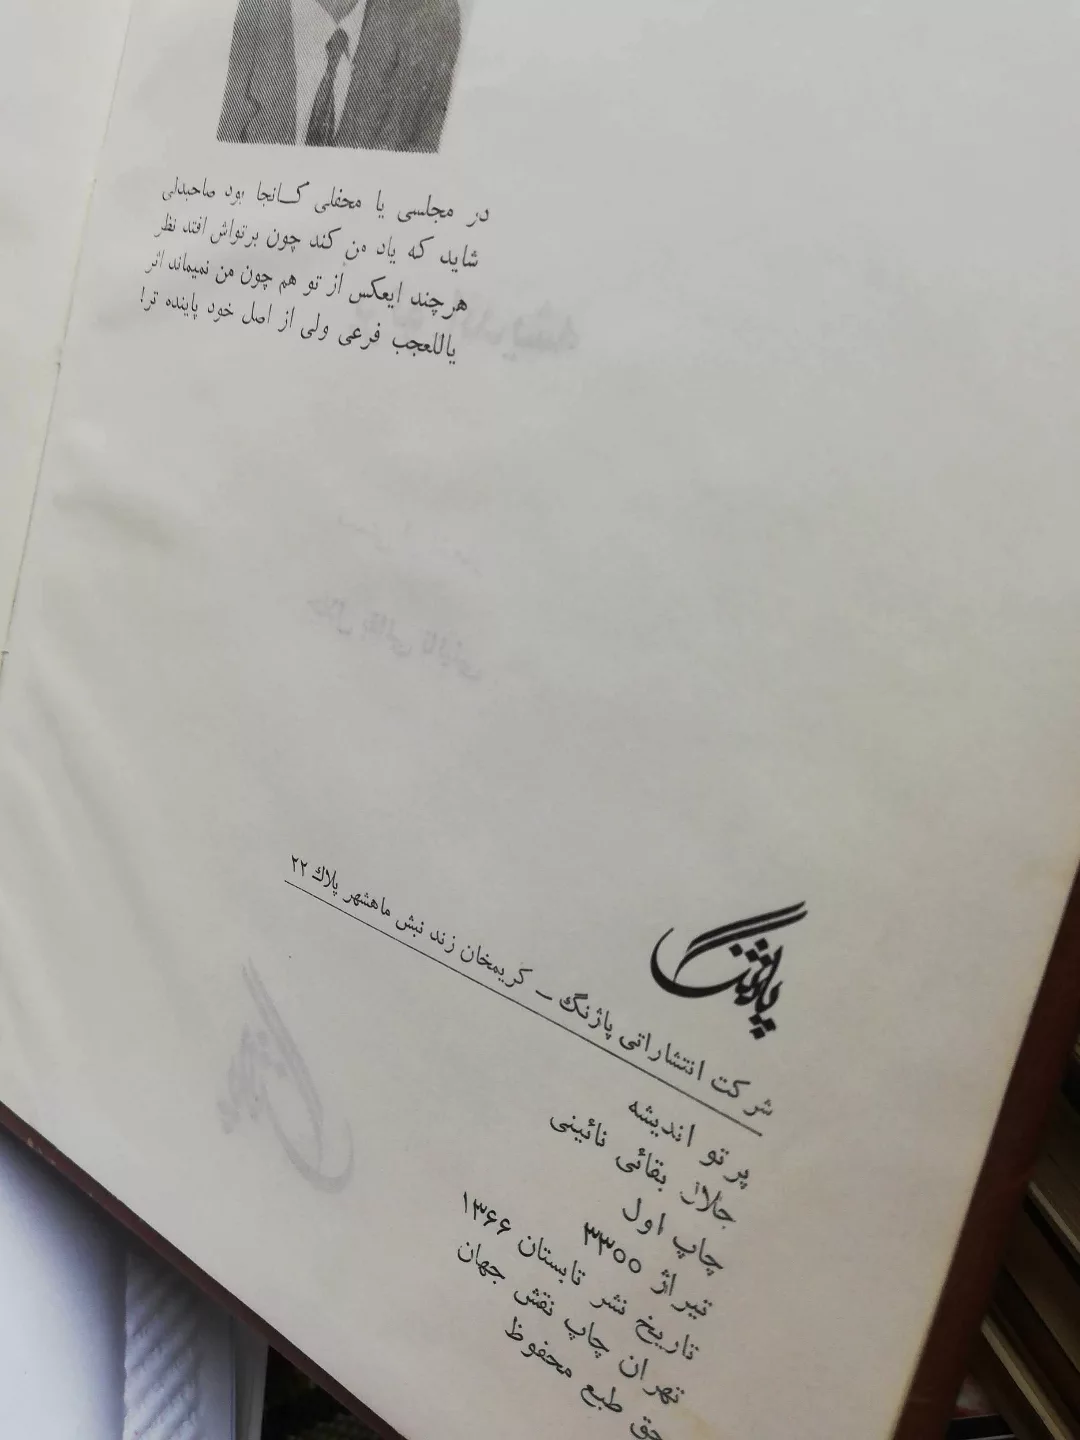 در مجلسی یا محفلی کـانجا بود صاحبدلی
شاید که یاد من کند چون برتواش افتد نظر
هرچند ایعکس از تو هم چون من نمیماند اثر
یاللعجب فرعی ولی از اصل خود پاینده تر!
پاژنگ
شرکت انتشاراتی پاژنگ – کریمخان زند نبش ماهشهر پلاک ۲۲
پرتو اندیشه
جلال بقائی نائینی
چاپ اول
تیراژ ۳۳۰۰
تاریخ نشر تابستان ۱۳۶۶
تهران چاپ نقش جهان
حق طبع محفوظ